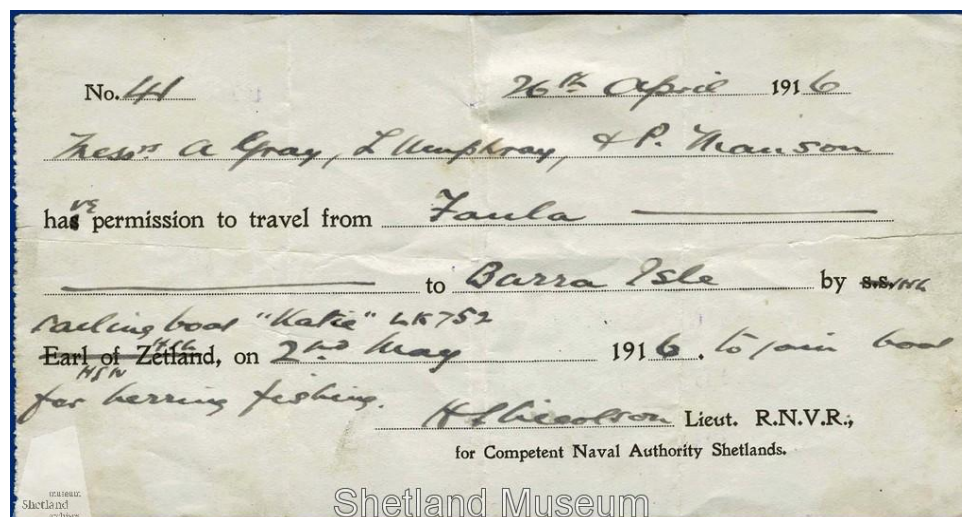 No. 41 26th April 1916
Messrs. A Gray, L Umphray, & P. Manson
has ve permission to travel from Foula
to Barra Isle by s.s. HSN
sailing boat "Katie" LK752
Earl of Zetland, on 2nd May 1916. to join boat
HSN
for herring fishing.
H S Nicolson Lieut. R.N.V.R.,
for Competent Naval Authority Shetlands.
museum
Shetland
archives
Shetland Museum